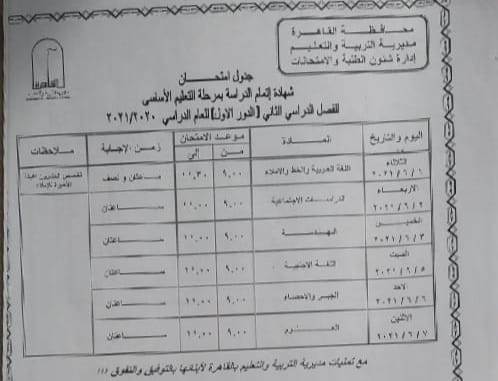 محافظة القاهرة
مديرية التربية والتعليم
إدارة شئون الطلبة والامتحانات
جدول امتحان
شهادة إتمام الدراسة بمرحلة التعليم الأساسى
للفصل الدراسي الثاني (الدور الاول) للعام الدراسي ٢٠٢١/٢٠٢٠
اليوم والتاريخ المادة موعد الامتحان زمن الإجابة ملاحظات
من إلى
الثلاثاء ٢٠٢١/٦/١ اللغة العربية والخط والاملاء ٩,٠٠ ١١,٣٠ ساعتان ونصف
الاربعاء ٢٠٢١/٦/٢ الدراسات الاجتماعية ٩,٠٠ ١١,٠٠ ساعتان
الخميس ٢٠٢١/٦/٣ الهندسة ٩,٠٠ ١١,٠٠ ساعتان
السبت ٢٠٢١/٦/٥ اللغة الاجنبية ٩,٠٠ ١١,٠٠ ساعتان
الاحد ٢٠٢١/٦/٦ الجبر والاحصاء ٩,٠٠ ١١,٠٠ ساعتان
الاثنين ٢٠٢١/٦/٧ العلوم ٩,٠٠ ١١,٠٠ ساعتان
مع تمنيات مديرية التربية والتعليم بالقاهرة لأبنائها بالتوفيق والتفوق